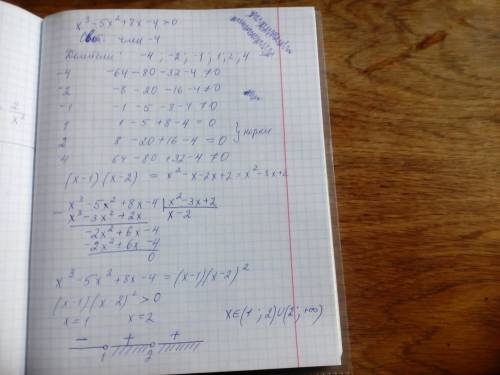 x³-5x²+8x-4>0
Своб. член -4
Делители: -4; -2; -1; 1; 2; 4
-4 -64-80-32-4≠0
-2 -8-20-16-4≠0
-1 -1-5-8-4≠0
1 1-5+8-4=0
2 8-20+16-4=0 } корни
4 64-80+32-4≠0
(x-1)(x-2) = x²-x-2x+2=x²-3x+2
x³-5x²+8x-4 | x²-3x+2
x³-3x²+2x x-2
-2x²+6x-4
-2x²+6x-4
0
x³-5x²+8x-4=(x-1)(x-2)²
(x-1)(x-2)²>0
x=1 x=2 x∈(1;2)∪(2;+∞)
- + +
1 2
2
x²